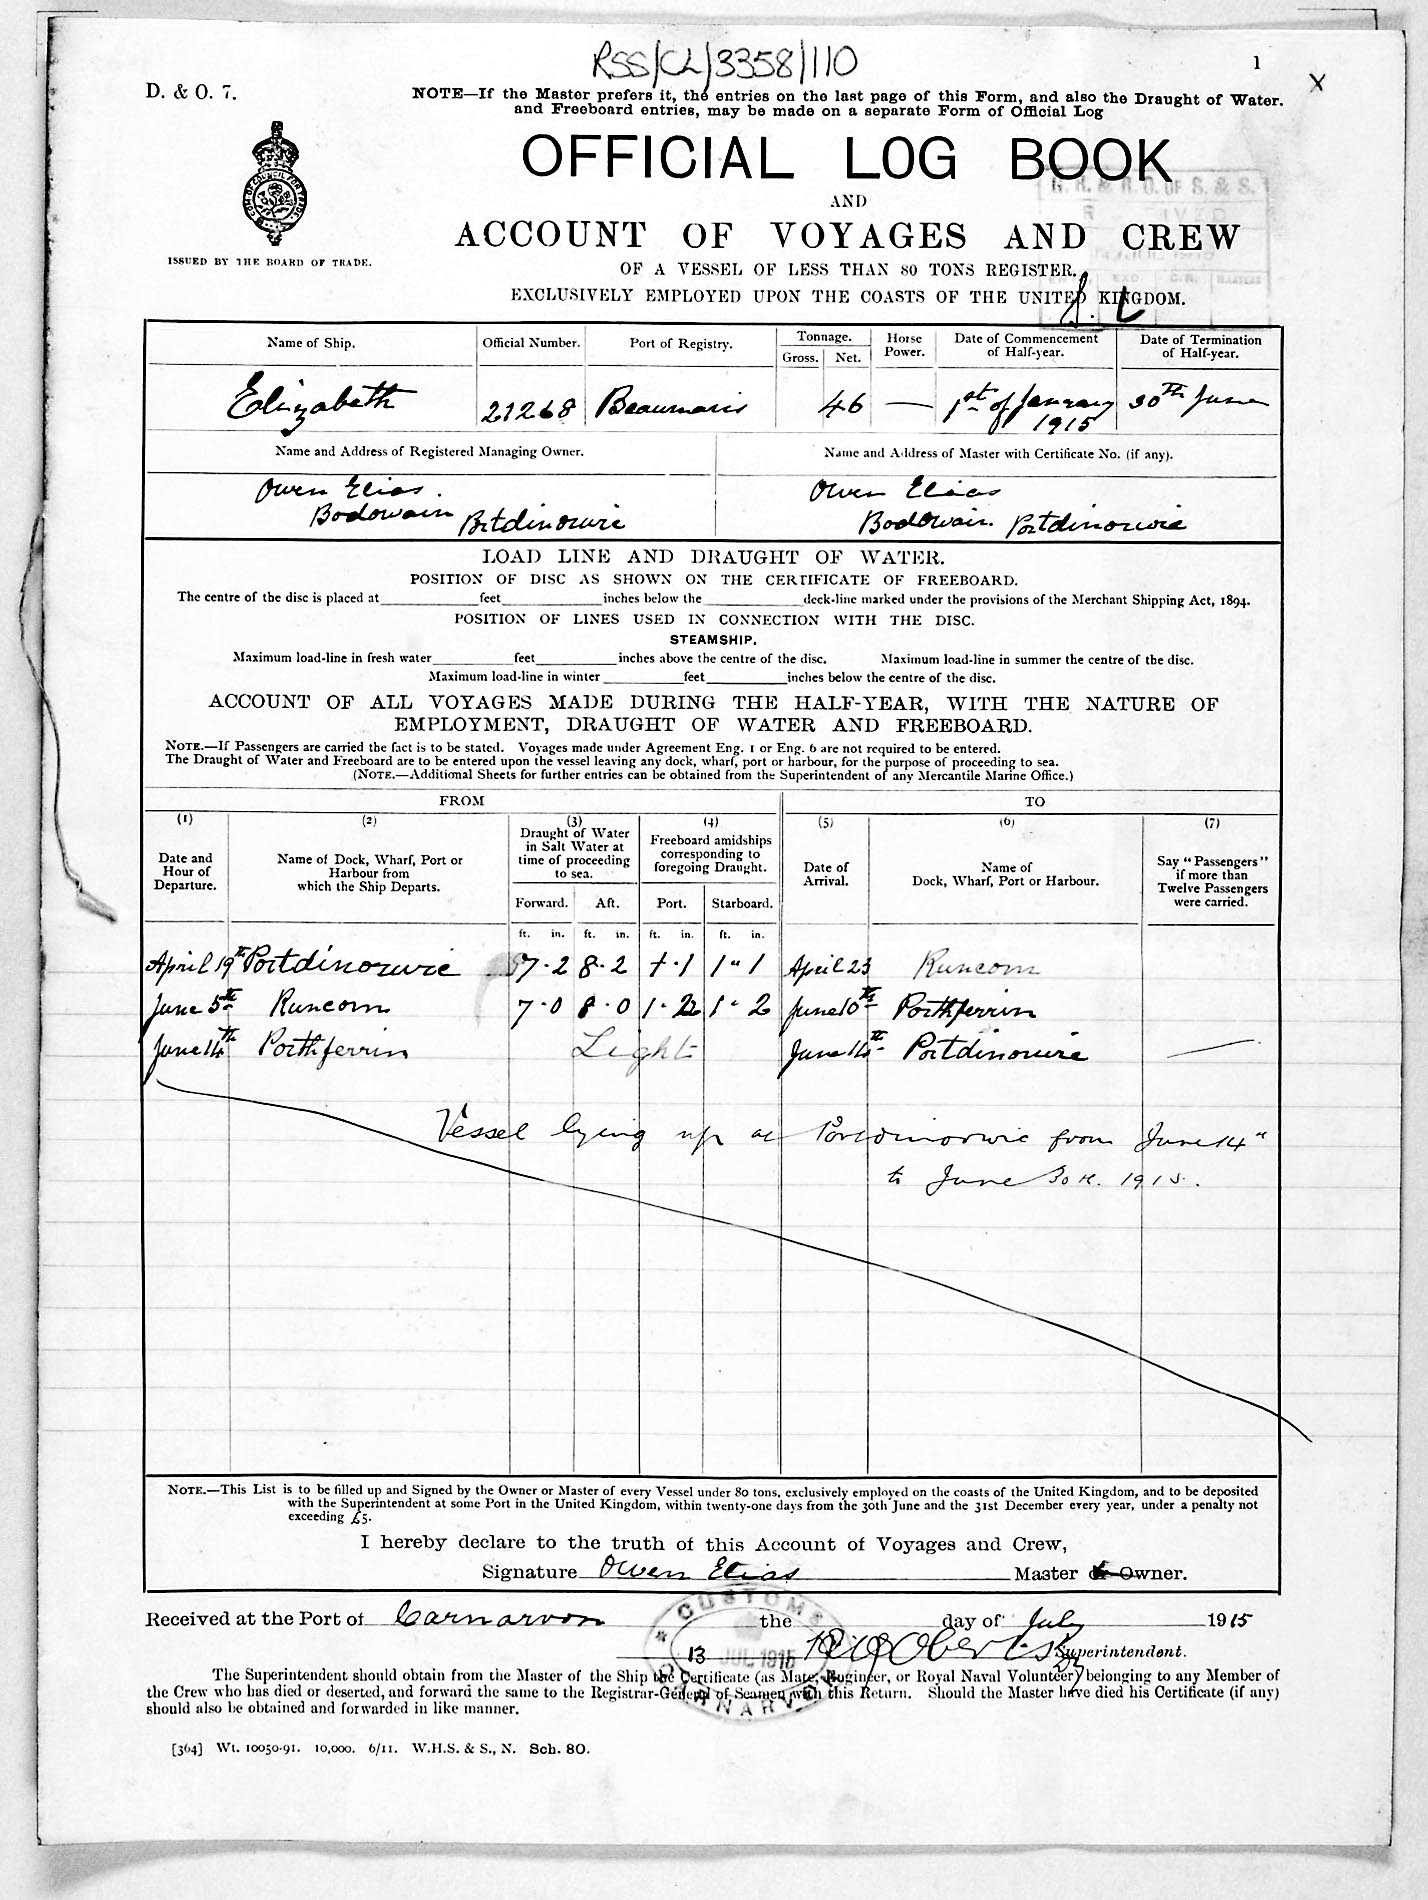 RSS/CL/3358/110
1
X
D. & O. 7.
NOTE—If the Master prefers it, the entries on the last page of this Form, and also the Draught of Water.
and Freeboard entries, may be made on a separate Form of Official Log
OFFICIAL LOG BOOK
AND
ACCOUNT OF VOYAGES AND CREW
ISSUED BY THE BOARD OF TRADE.
OF A VESSEL OF LESS THAN 80 TONS REGISTER.
EXCLUSIVELY EMPLOYED UPON THE COASTS OF THE UNITED KINGDOM.
Name of Ship. Official Number. Port of Registry. Tonnage. Gross. Net. Horse Power. Date of Commencement of Half-year. Date of Termination of Half-year.
Elizabeth 21268 Beaumaris 46 — 1st of January 1915 30th June
Name and Address of Registered Managing Owner. Name and Address of Master with Certificate No. (if any).
Owen Elias. Owen Elias
Bodowain Portdinorwic Bodowain. Portdinorwic
LOAD LINE AND DRAUGHT OF WATER.
POSITION OF DISC AS SHOWN ON THE CERTIFICATE OF FREEBOARD.
The centre of the disc is placed at feet inches below the deck-line marked under the provisions of the Merchant Shipping Act, 1894.
POSITION OF LINES USED IN CONNECTION WITH THE DISC.
STEAMSHIP.
Maximum load-line in fresh water feet inches above the centre of the disc. Maximum load-line in summer the centre of the disc.
Maximum load-line in winter feet inches below the centre of the disc.
ACCOUNT OF ALL VOYAGES MADE DURING THE HALF-YEAR, WITH THE NATURE OF
EMPLOYMENT, DRAUGHT OF WATER AND FREEBOARD.
NOTE.—If Passengers are carried the fact is to be stated. Voyages made under Agreement Eng. 1 or Eng. 6 are not required to be entered.
The Draught of Water and Freeboard are to be entered upon the vessel leaving any dock, wharf, port or harbour, for the purpose of proceeding to sea.
(NOTE.—Additional Sheets for further entries can be obtained from the Superintendent of any Mercantile Marine Office.)
FROM TO
(1) (2) (3) (4) (5) (6) (7)
Date and Hour of Departure. Name of Dock, Wharf, Port or Harbour from which the Ship Departs. Draught of Water in Salt Water at time of proceeding to sea. Freeboard amidships corresponding to foregoing Draught. Date of Arrival. Name of Dock, Wharf, Port or Harbour. Say "Passengers" if more than Twelve Passengers were carried.
Forward. Aft. Port. Starboard.
ft. in. ft. in. ft. in. ft. in.
April 19th Portdinorwic 7·2 8·2 1·1 1"1 April 23 Runcorn
June 5th Runcorn 7·0 8·0 1·2 1·2 June 10th Porthferrin
June 14th Porthferrin Light June 14th Portdinorwic —
Vessel lying up at Portdinorwic from June 14"
to June 30th. 1915.
NOTE.—This List is to be filled up and Signed by the Owner or Master of every Vessel under 80 tons, exclusively employed on the coasts of the United Kingdom, and to be deposited
with the Superintendent at some Port in the United Kingdom, within twenty-one days from the 30th June and the 31st December every year, under a penalty not
exceeding £5.
I hereby declare to the truth of this Account of Voyages and Crew,
Signature Owen Elias Master or Owner.
Received at the Port of Carnarvon the day of July 1915
CUSTOMS
13 JUL 1915
CARNARVON
Superintendent.
The Superintendent should obtain from the Master of the Ship the Certificate (as Mate, Engineer, or Royal Naval Volunteer) belonging to any Member of
the Crew who has died or deserted, and forward the same to the Registrar-General of Seamen with this Return. Should the Master have died his Certificate (if any)
should also be obtained and forwarded in like manner.
[364] Wt. 10050-91. 10,000. 6/11. W.H.S. & S., N. Sch. 80.